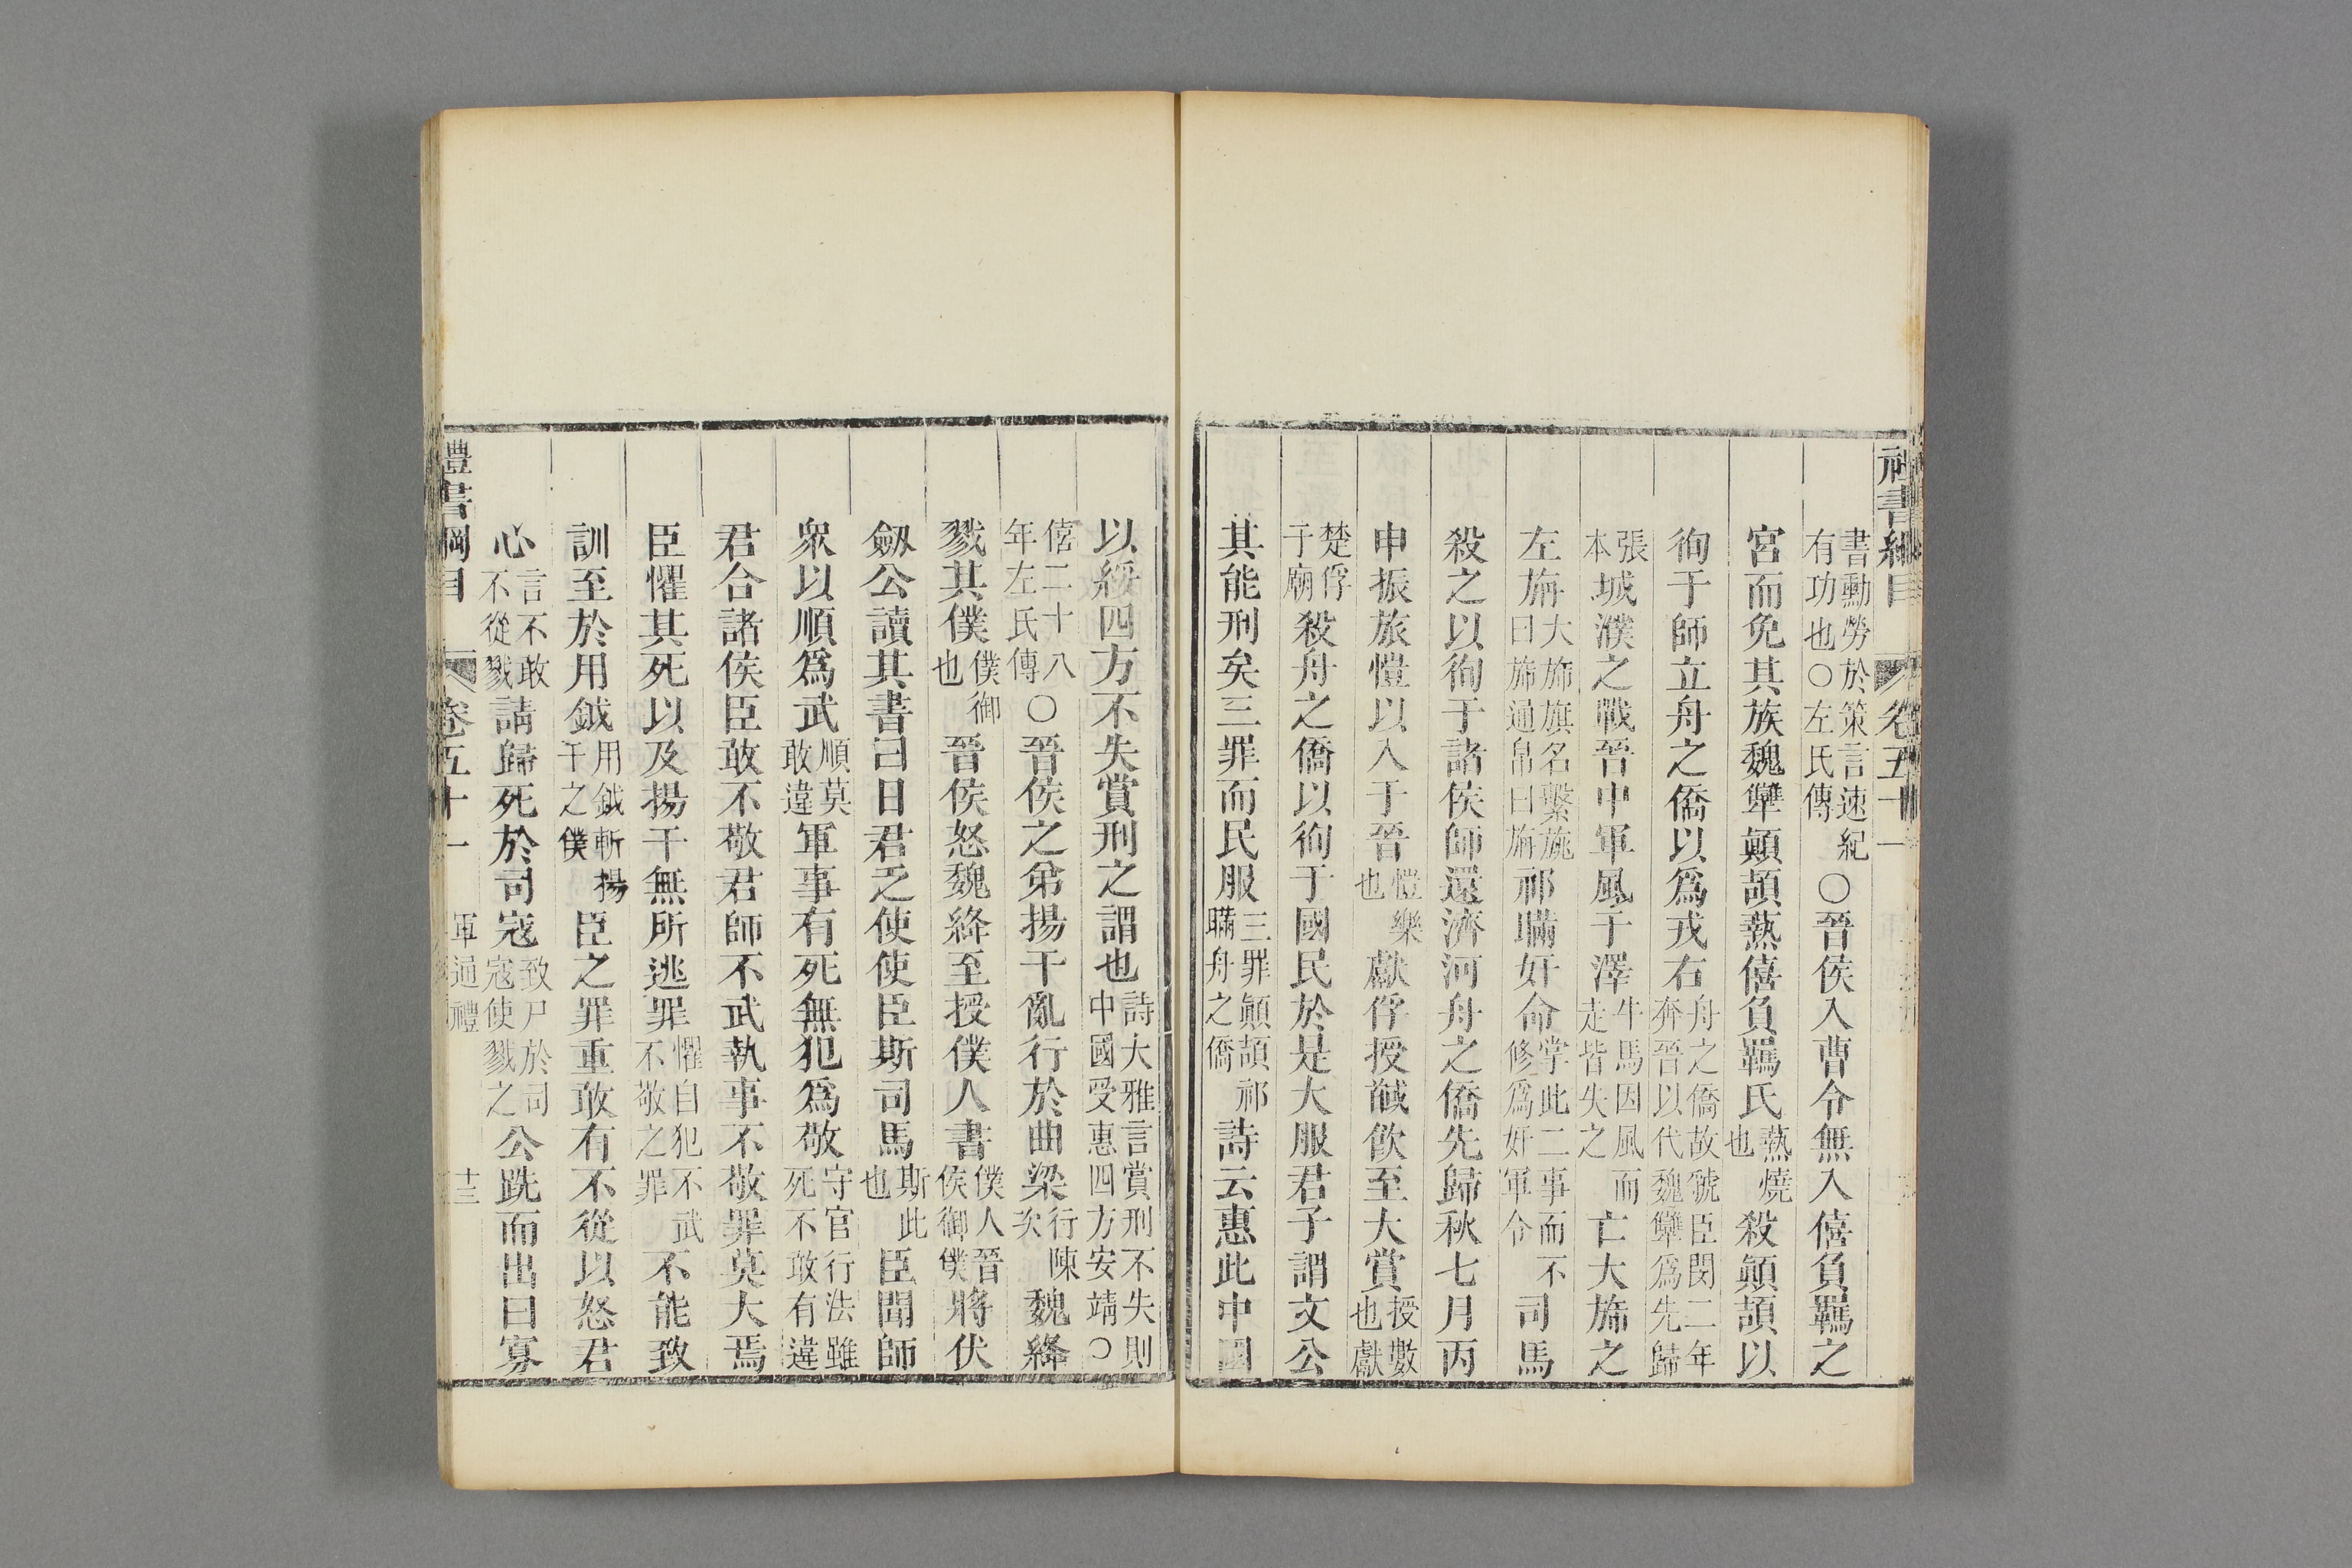 書勳勞於策言速紀有功也○左氏傳○晉侯入曹令無入僖負羈之
宮而免其族魏犨顛頡爇僖負羈氏爇燒也殺顛頡以
徇于師立舟之僑以爲戎右舟之僑故虢臣閔二年奔晉以代魏犨爲先歸
張本城濮之戰晉中軍風于澤牛馬因風而走皆失之亡大旆之
左旃大旆旗名繫旐曰旆通帛曰旃祁瞞奸命掌此二事而不修爲奸軍令司馬
殺之以徇于諸侯師還濟河舟之僑先歸秋七月丙
申振旅愷以入于晉愷樂也獻俘授馘飲至大賞授數也獻
楚俘于廟殺舟之僑以徇于國民於是大服君子謂文公
其能刑矣三罪而民服三罪顛頡祁瞞舟之僑詩云惠此中國
以綏四方不失賞刑之謂也詩大雅言賞刑不失則中國受惠四方安靖○
僖二十八年左氏傳○晉侯之弟揚干亂行於曲梁行陳次魏絳
戮其僕僕御也晉侯怒魏絳至授僕人書僕人晉侯御僕將伏
劔公讀其書曰日君乏使使臣斯司馬斯此也臣聞師
衆以順爲武順莫敢違軍事有死無犯爲敬守官行法雖死不敢有違
君合諸侯臣敢不敬君師不武執事不敬罪莫大焉
臣懼其死以及揚干無所逃罪懼自犯不武不敬之罪不能致
訓至於用鉞用鉞斬揚干之僕臣之罪重敢有不從以怒君
心言不敢不從戮請歸死於司寇致尸於司寇使戮之公跣而出曰寡
禮書綱目 卷五十一 軍通禮 十三